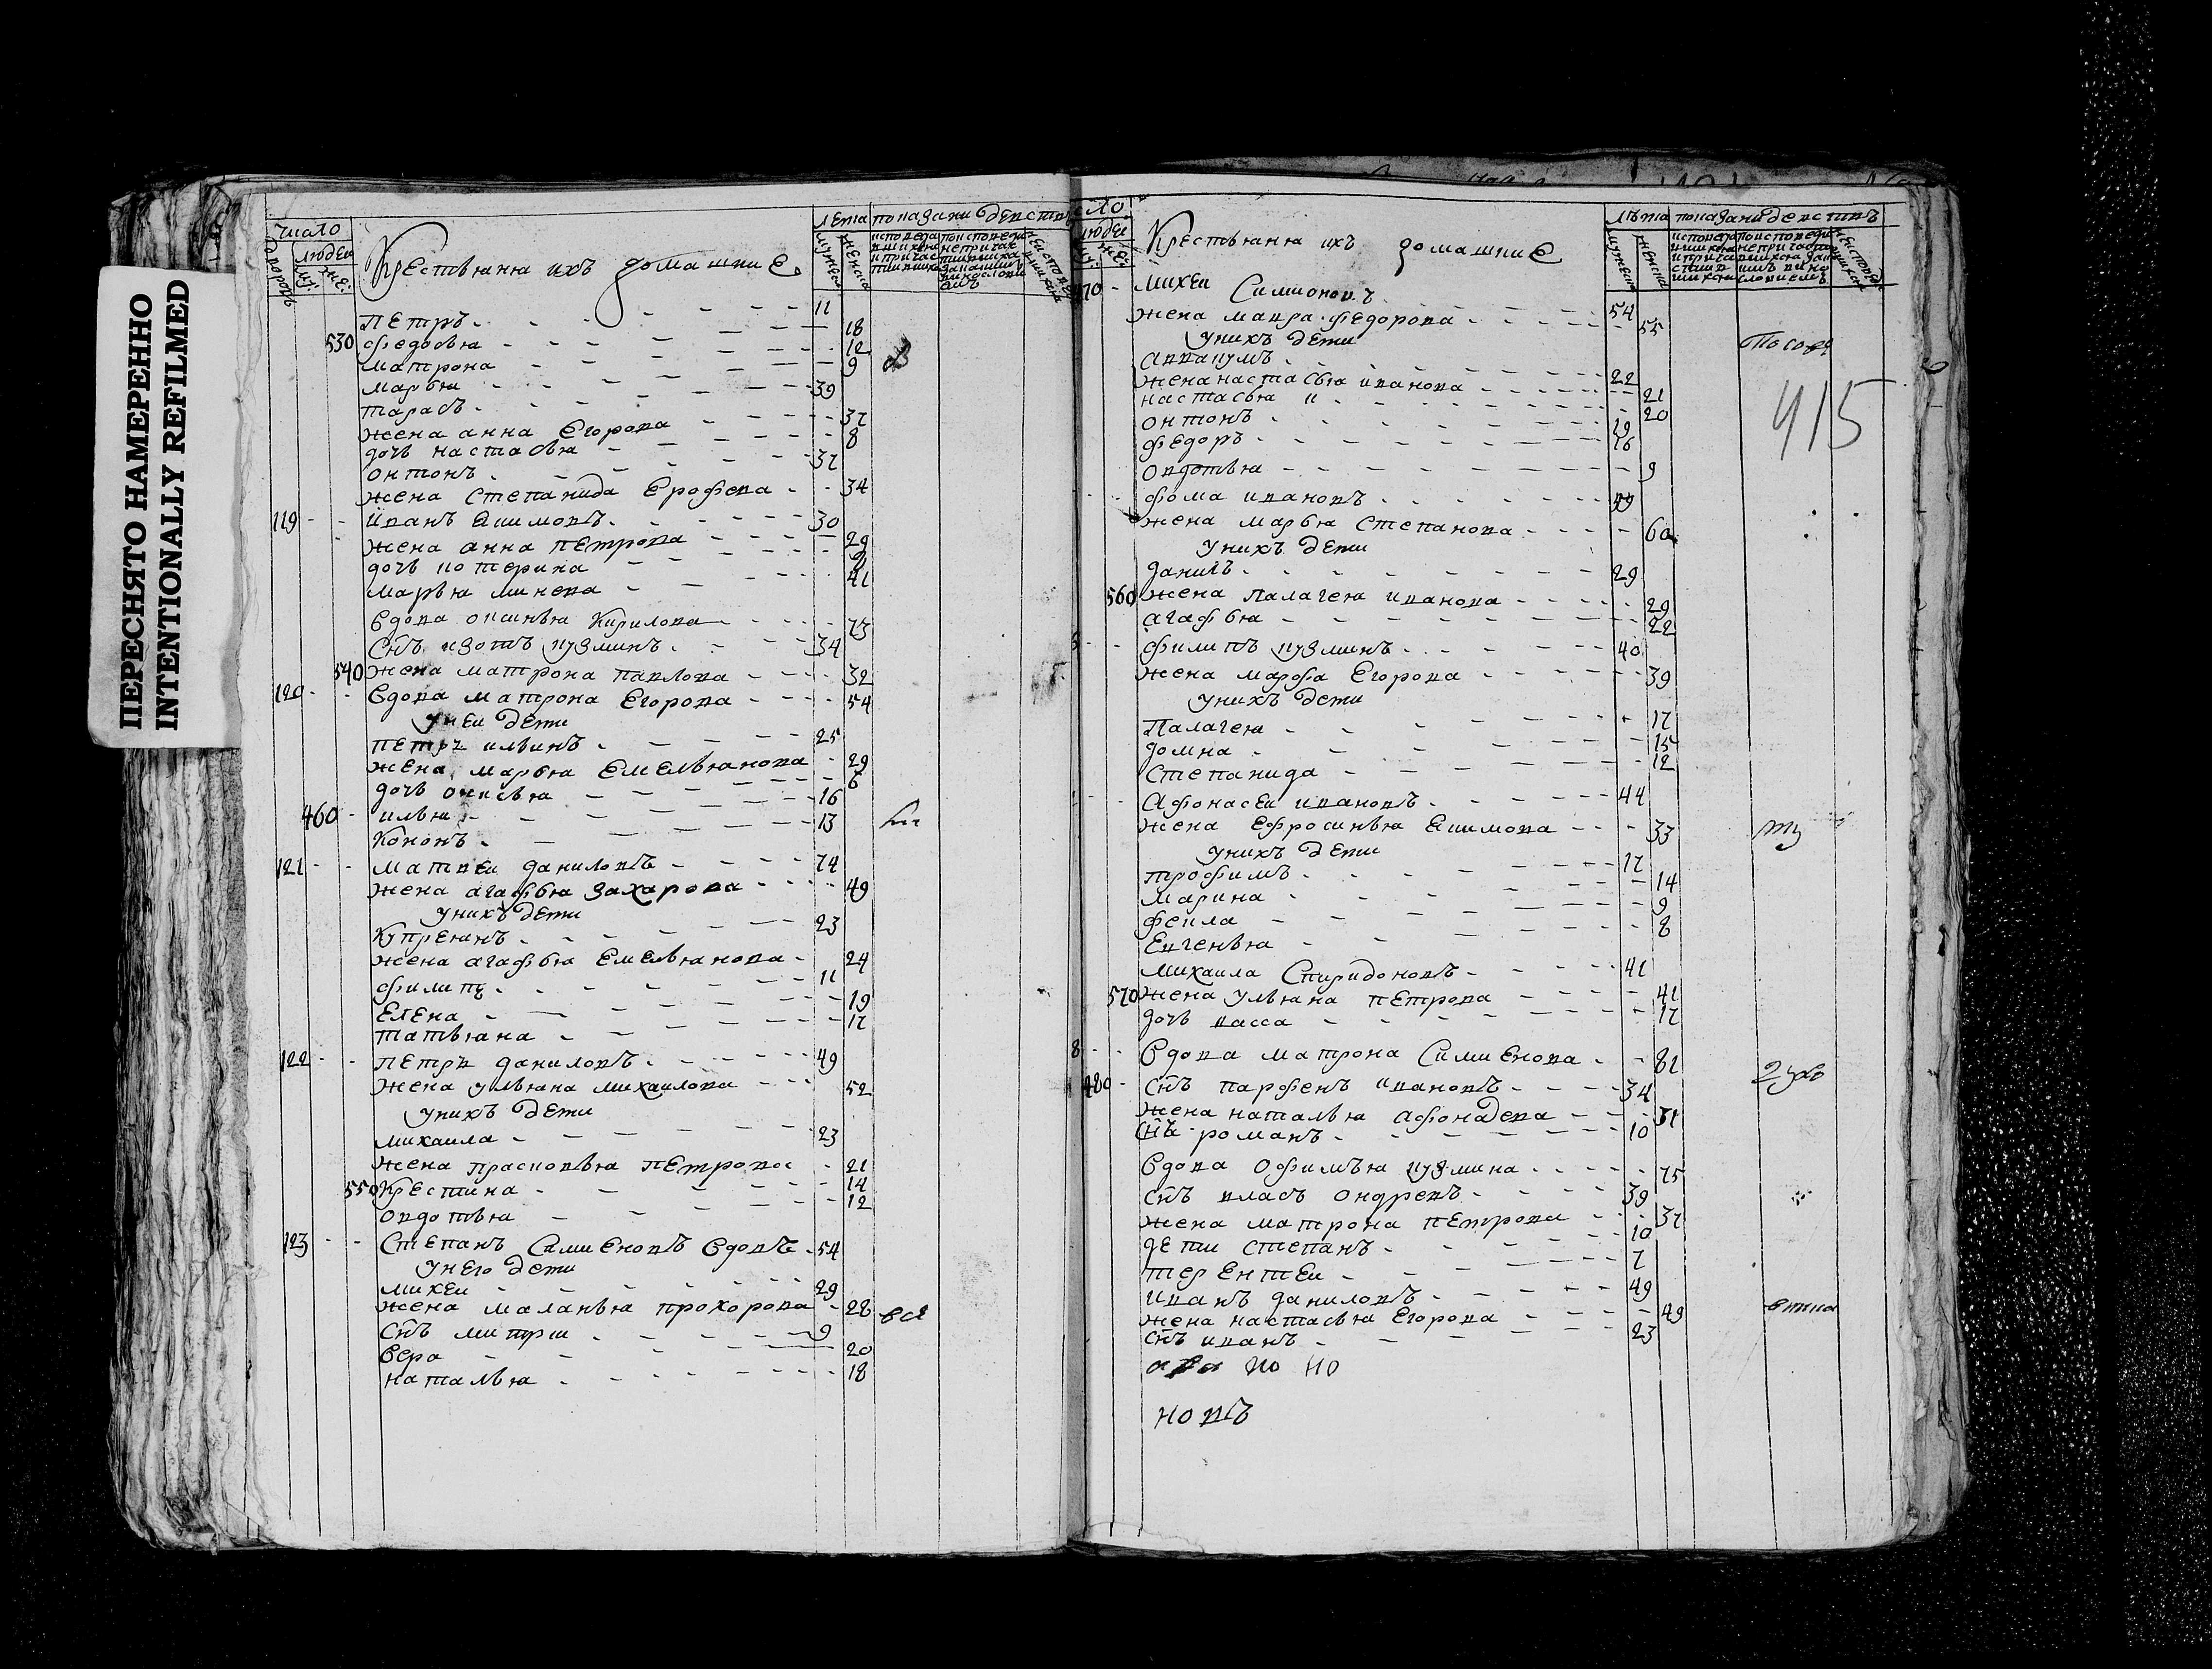 ПЕРЕСНЯТО НАМЕРЕННО
INTENTIONALLY REFILMED
число
людеи
Крестьяня ихъ домашние
лета показани действ
Петръ 11
530 федосья 18
матрона 12
марья 9
тарасъ 39
жена анна Егорова 37
дочь настасья 8
онтонъ 37
жена Степанида Ерофева 34
119 иванъ Екимовъ 30
жена анна Петрова 29
дочь котерина
марья минева 41
вдова оксинья Кирилова 73
Снъ изотъ кузминъ 34
540 жена матрона павлова 32
120 вдова матрона Егорова 54
унеи дети
петръ ильинъ 25
жена марья Емельянова 29
дочь 6
460 илья 16
Кононъ 13
121 матвеи даниловъ 74
жена агафья захарова 49
унихъ дети
Купреянъ 23
жена агафья Емельянова 24
филипъ 11
Елена 19
татьяна 17
122 петръ даниловъ 49
жена ульяна михаилова 52
унихъ дети
михаила 23
жена прасковья петрова 21
550 Крестина 14
овдотья 12
123 Степанъ Симионовъ вдовъ 54
унего дети
михеи 29
жена маланья прохорова 28
Снъ митреи 9
вера 20
наталья 18
ло
людеи
Крестьяня ихъ домашние
лѣта показани действъ
470 михеи Симионовъ 54
жена мавра федорова 55
унихъ дети
аввакумъ 22
жена настасья иванова 21
настасья 20
онтонъ 19
федоръ 16
овдотья 9
415
фома ивановъ 49
жена марья Степанова 60
унихъ дети
данилъ 29
560 жена Палагея иванова 29
агафья 22
филипъ кузминъ 40
жена марфа Егорова 39
унихъ дети
Палагея 17
домна 15
Степанида 12
Афонасеи ивановъ 44
жена Ефросинья Екимова 33
унихъ дети
трофимъ 17
марина 14
фекла 9
Евгенья 8
михаила Спиридоновъ 41
570 жена ульяна петрова 41
дочь васса 17
8 вдова матрона Симиенова 81
480 Снъ парфенъ ивановъ 34
жена наталья афонасева 31
Снъ романъ 10
вдова офимья кузмина 75
Снъ власъ ондревъ 39
жена матрона петрова 37
дети степанъ 10
терентеи 7
иванъ даниловъ 49
жена настасья Егорова 49
Снъ иванъ 23
новъ